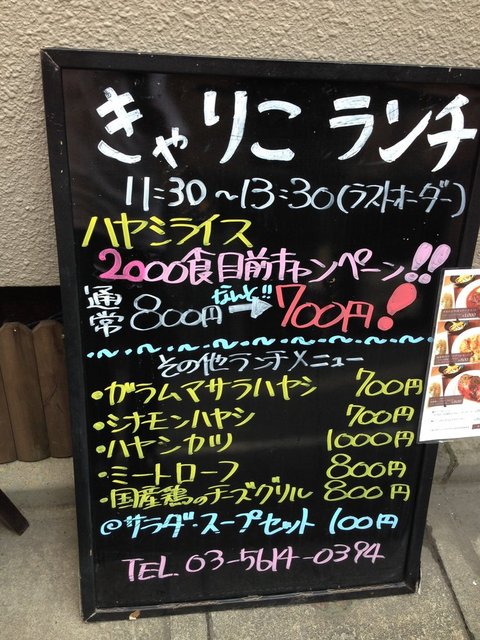 きゃりこ ランチ
11:30～13:30(ラストオーダー)
ハヤシライス
2000食目前キャンペーン!!
通常 800円 なんと!! → 700円!
その他ランチメニュー
・ガラムマサラハヤシ 700円
・シナモンハヤシ 700円
・ハヤシカツ 1000円
・ミートローフ 800円
・国産鶏のチーズグリル 800円
@サラダ・スープセット 100円
TEL. 03-5614-0394